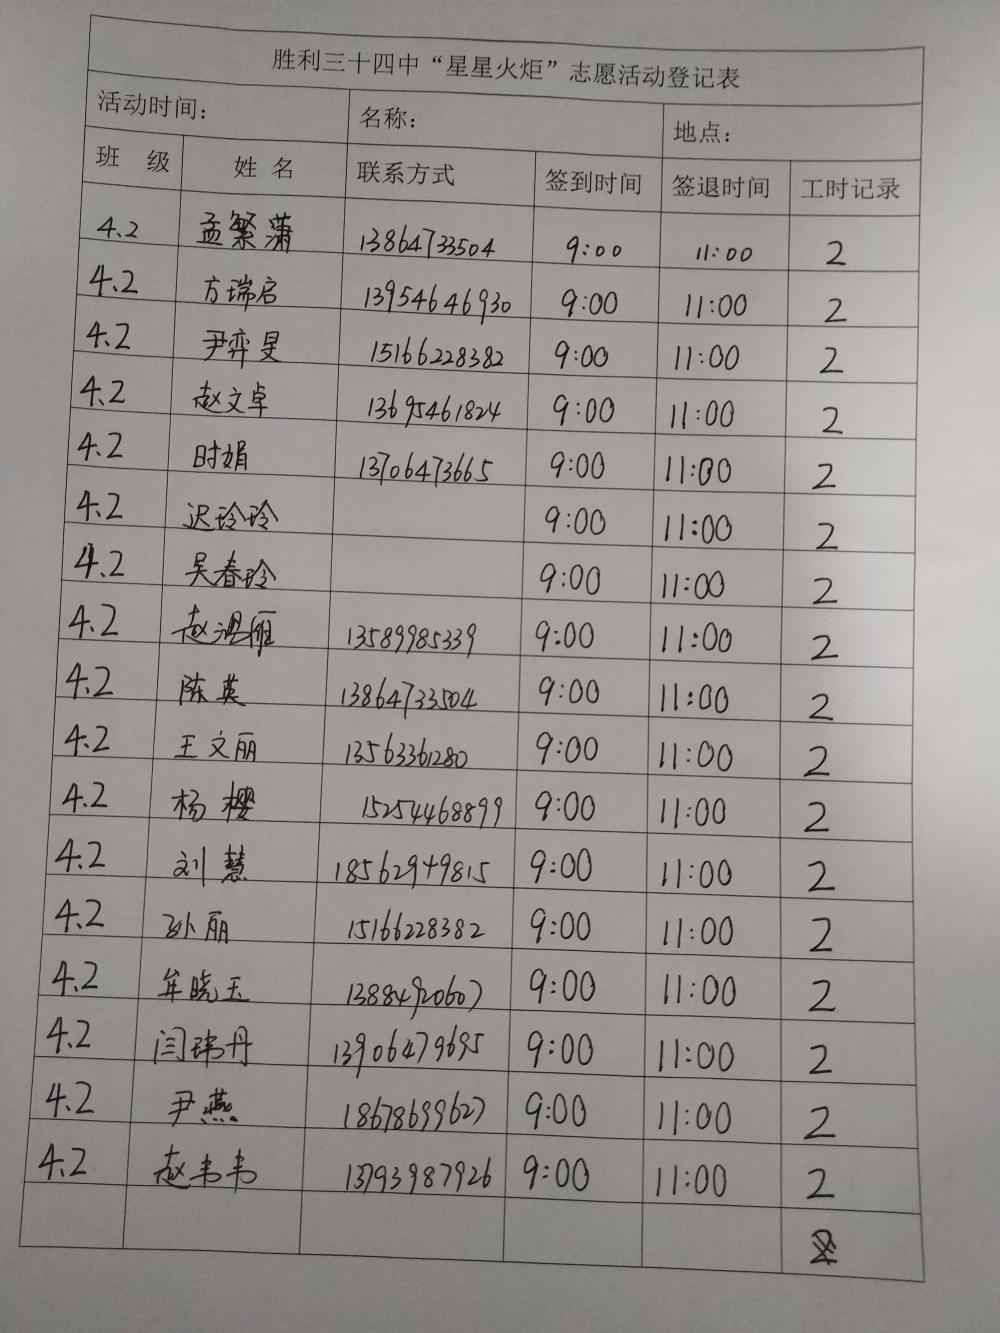 胜利三十四中“星星火炬”志愿活动登记表
活动时间： 名称： 地点：
班 级 姓 名 联系方式 签到时间 签退时间 工时记录
4.2 孟繁蒲 13864733504 9:00 11:00 2
4.2 方瑞启 13954646930 9:00 11:00 2
4.2 尹弈旻 15166228382 9:00 11:00 2
4.2 赵文卓 13695461824 9:00 11:00 2
4.2 时娟 13706473665 9:00 11:00 2
4.2 迟玲玲 9:00 11:00 2
4.2 吴春玲 9:00 11:00 2
4.2 赵鸿雁 13589985339 9:00 11:00 2
4.2 陈英 13864733504 9:00 11:00 2
4.2 王文丽 13563361280 9:00 11:00 2
4.2 杨樱 15254468899 9:00 11:00 2
4.2 刘慧 18562949815 9:00 11:00 2
4.2 孙丽 15166228382 9:00 11:00 2
4.2 牟晓玉 13884920607 9:00 11:00 2
4.2 闫玮丹 13906479695 9:00 11:00 2
4.2 尹燕 18678699627 9:00 11:00 2
4.2 赵韦韦 13793987926 9:00 11:00 2